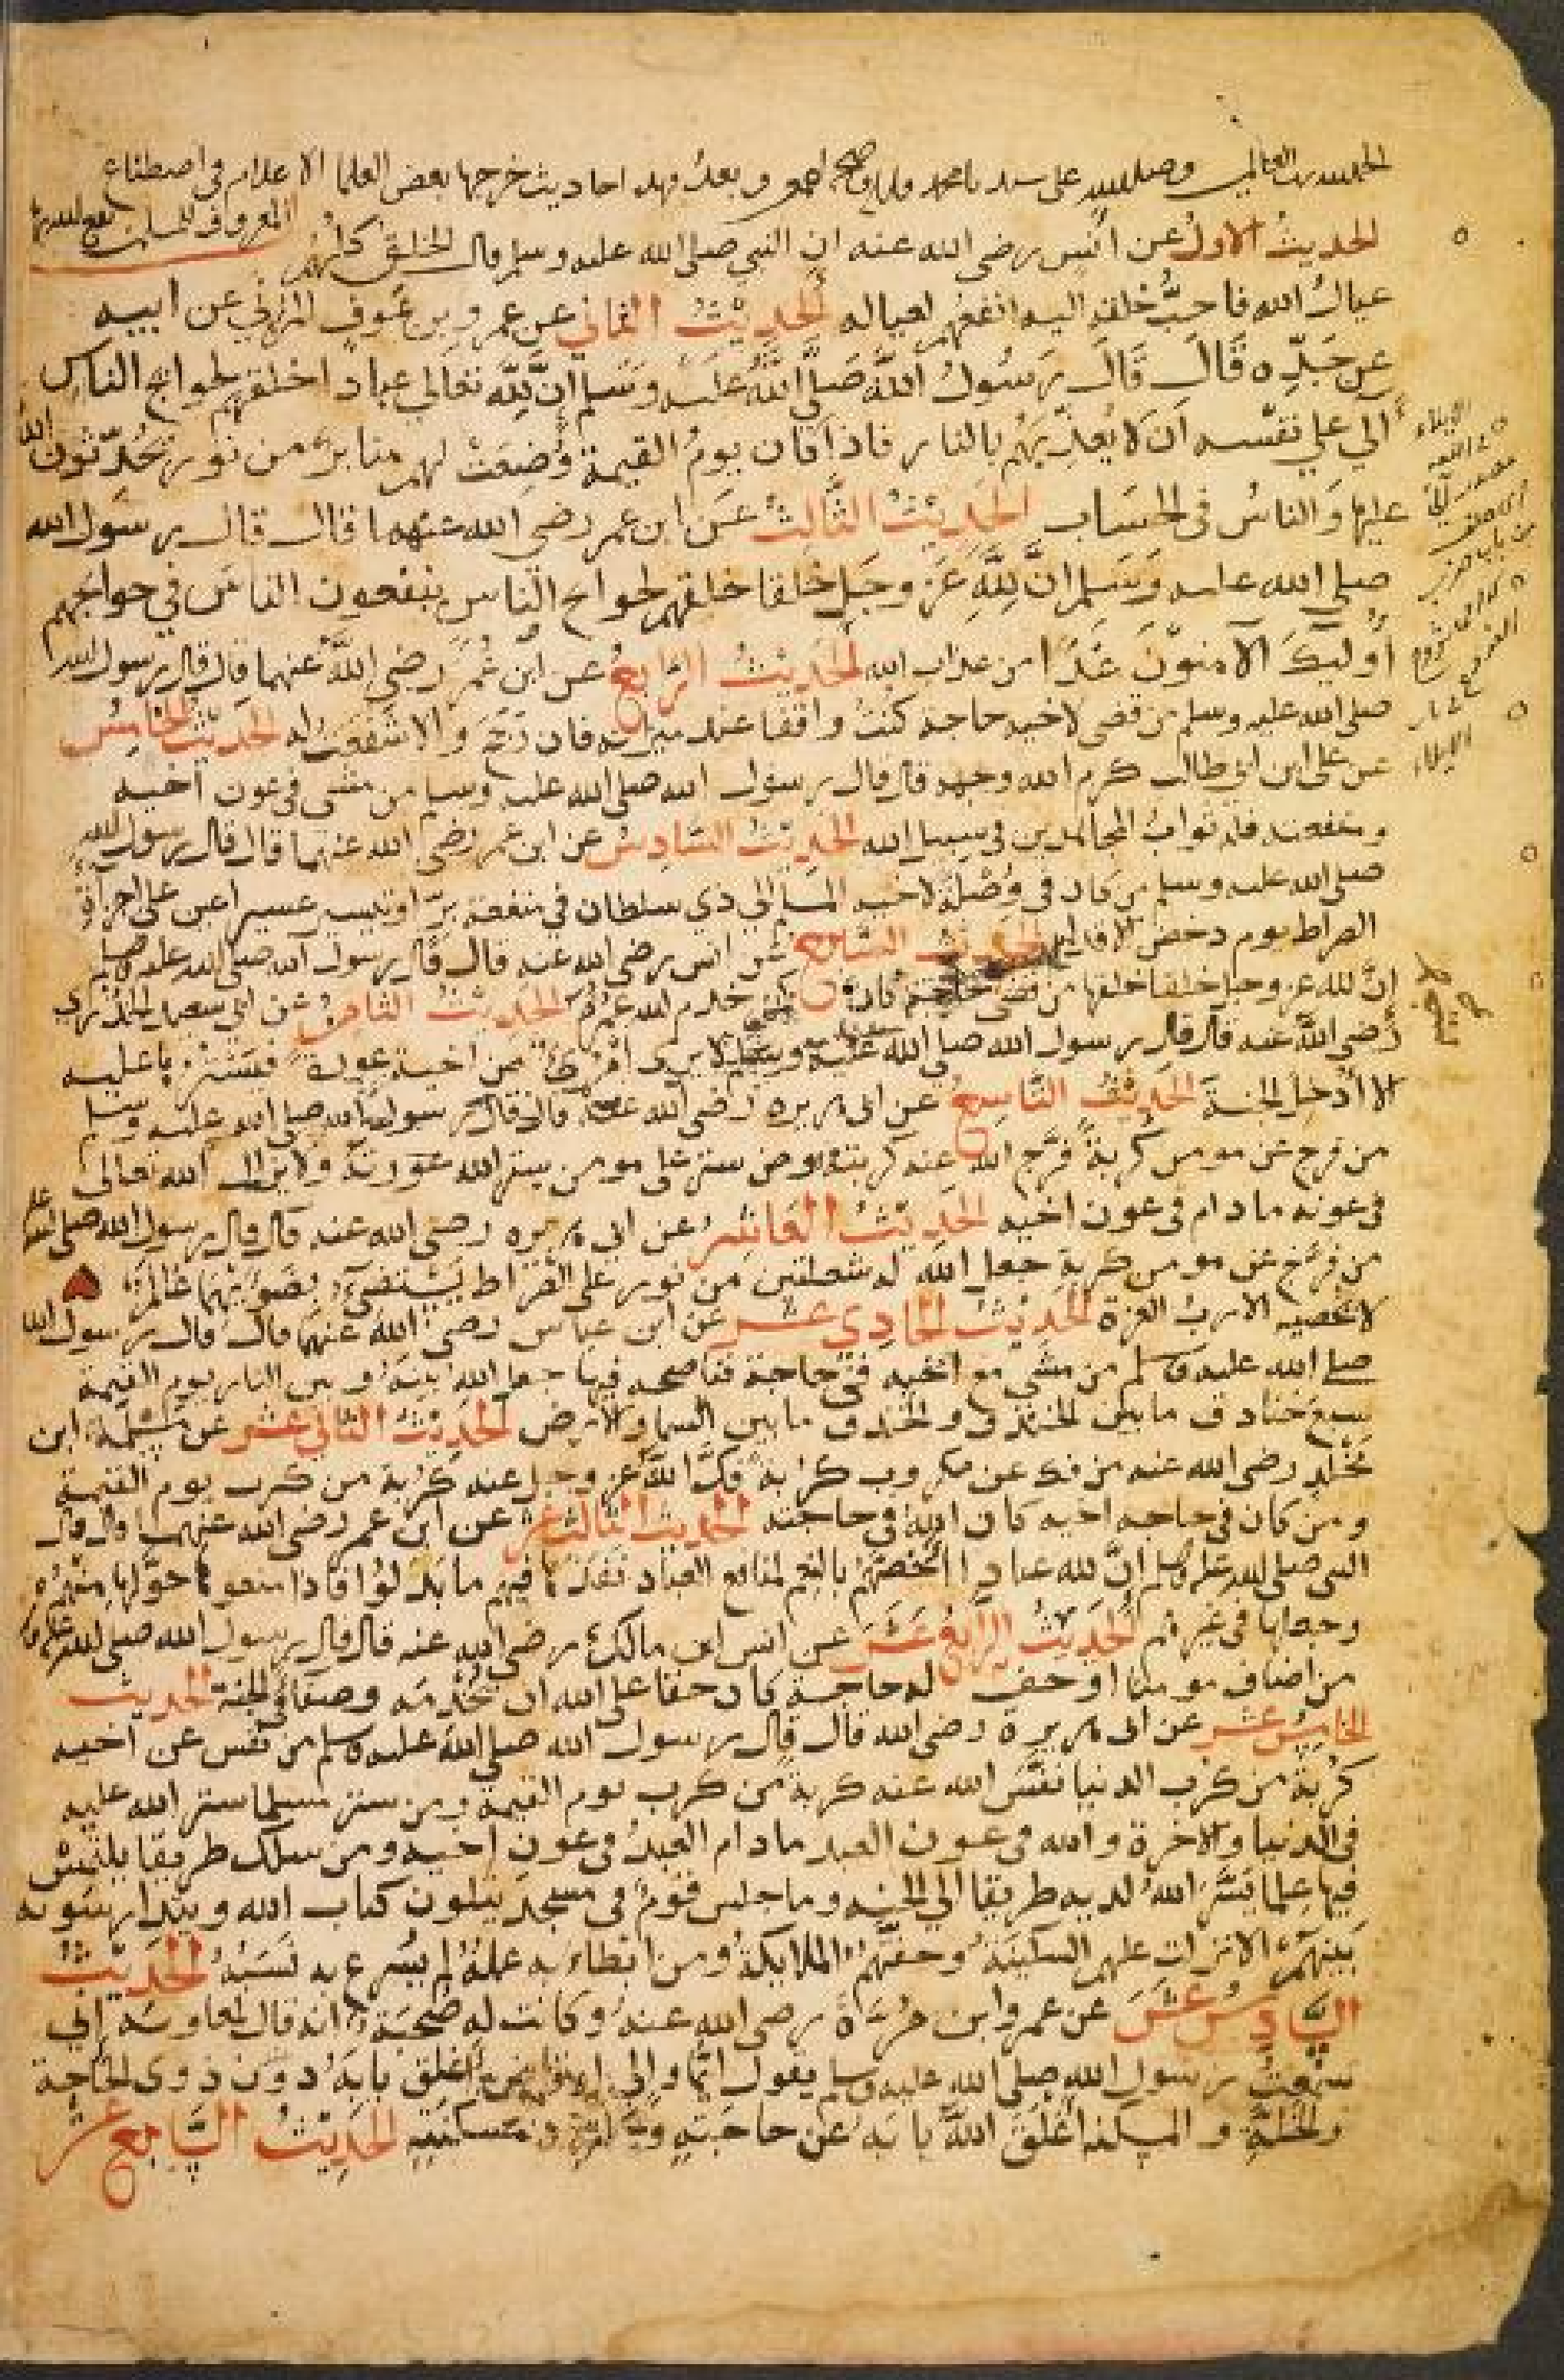 الحمد لله رب العالمين وصلى الله على سيدنا محمد واله وصحبه اجمعين وبعد فهذه احاديث خرجها بعض العلما الاعلام في اصطناع
المعروف للمسلمين
الحديث الاول عن انس رضي الله عنه ان النبي صلى الله عليه وسلم قال الخلق كلهم
عيال الله فاحب خلقه اليه انفعهم لعياله الحديث الثاني عن عمرو بن عوف المزني عن ابيه
عن جده قال قال رسول الله صلى الله عليه وسلم ان لله تعالى عبادا خلقهم لحوائج الناس
الى على نفسه ان لا يعذبهم بالنار فاذا كان يوم القيمة وضعت لهم منابر من نور يحدثون الله
عليها والناس في الحساب الحديث الثالث عن ابن عمر رضي الله عنهما قال قال رسول الله
صلى الله عليه وسلم ان لله عز وجل خلقا خلقهم لحوائج الناس ينفعون الناس في حوائجهم
اوليك الامنون غدا من عذاب الله الحديث الرابع عن ابن عمر رضي الله عنهما قال قال رسول الله
صلى الله عليه وسلم من قضى لاخيه حاجة كنت واقفا عند ميزانه فان رجح والا شفعت له الحديث الخامس
عن علي ابن ابي طالب كرم الله وجهه قال قال رسول الله صلى الله عليه وسلم من مشى في عون اخيه
ومنفعته فله ثواب المجاهدين في سبيل الله الحديث السادس عن ابن عمر رضي الله عنهما قال قال رسول الله
صلى الله عليه وسلم من كان في وصلة لاخيه المسلم الى ذي سلطان في منفعة بر او تيسير عسير اعين على اجازة
الصراط يوم دحض الاقدام الحديث السابع عن انس رضي الله عنه قال قال رسول الله صلى الله عليه وسلم
ان لله عز وجل خلقا خلقها من قضى حاجة كان خدم الله عمره الحديث الثامن عن ابي سعيد الخدري
رضي الله عنه قال قال رسول الله صلى الله عليه وسلم لا يرى امرئ من اخيه عورة فيسترها عليه
الا ادخل الجنة الحديث التاسع عن ابي هريره رضي الله عنه قال قال رسول الله صلى الله عليه وسلم
من فرج عن مومن كربة فرج الله عنه كربته ومن ستر على مومن ستر الله عورته ولا يزال الله تعالى
في عونه ما دام في عون اخيه الحديث العاشر عن ابي هريره رضي الله عنه قال قال رسول الله صلى الله عليه
من فرج عن مومن كربة جعل الله له شعلتين من نور على الصراط يستضيء بضوئهما عالم
لا يحصيه الا رب العزة الحديث الحادي عشر عن ابن عباس رضي الله عنهما قال قال رسول الله
صلى الله عليه وسلم من مشى مع اخيه في حاجة فناصحه فيها جعل الله بينه وبين النار يوم القيمة
سبع خنادق ما بين الخندق والخندق ما بين السما والارض الحديث الثاني عشر عن مسلمة ابن
مخلد رضي الله عنه من فك عن مكروب كربة فك الله عز وجل عنه كربة من كرب يوم القيمة
ومن كان في حاجه اخيه كان الله في حاجته الحديث الثالث عشر عن ابن عمر رضي الله عنهما قال قال
النبي صلى الله عليه وسلم ان لله عبادا اختصهم بالنعم لمنافع العباد فيهم ما بذلوها فاذا منعوها حولها منهم
وجعلها في غيرهم الحديث الرابع عشر عن انس ابن مالك رضي الله عنه قال قال رسول الله صلى الله عليه وسلم
من اضاف مومنا او خف له حاجة كان حقا على الله ان يخدمه وصيفا في الجنة الحديث
الخامس عشر عن ابي هريرة رضي الله قال قال رسول الله صلى الله عليه وسلم من نفس عن اخيه
كربة من كرب الدنيا نفس الله عنه كربة من كرب يوم القيمة ومن ستر مسلما ستر الله عليه
في الدنيا والاخرة والله في عون العبد ما دام العبد في عون اخيه ومن سلك طريقا يلتمس
فيها علما يسر الله له به طريقا الى الجنه وما جلس قوم في مسجد يتلون كتاب الله ويتدارسونه
بينهم الا نزلت عليهم السكينة وحفتهم الملايكة ومن ابطاء به عمله لم يسرع به نسبه الحديث
السادس عشر عن عمرو ابن مرة رضي الله عنه وكانت له صحبة انه قال لمعاويه اني
سمعت رسول الله صلى الله عليه وسلم يقول ايما وال اغلق بابه دون ذوي الحاجة
والخلة والمسكنه اغلق الله بابه عن حاجته ومسكنته الحديث السابع عشر
الايلاء
في اللغة
مصدر آلى
الايلاء